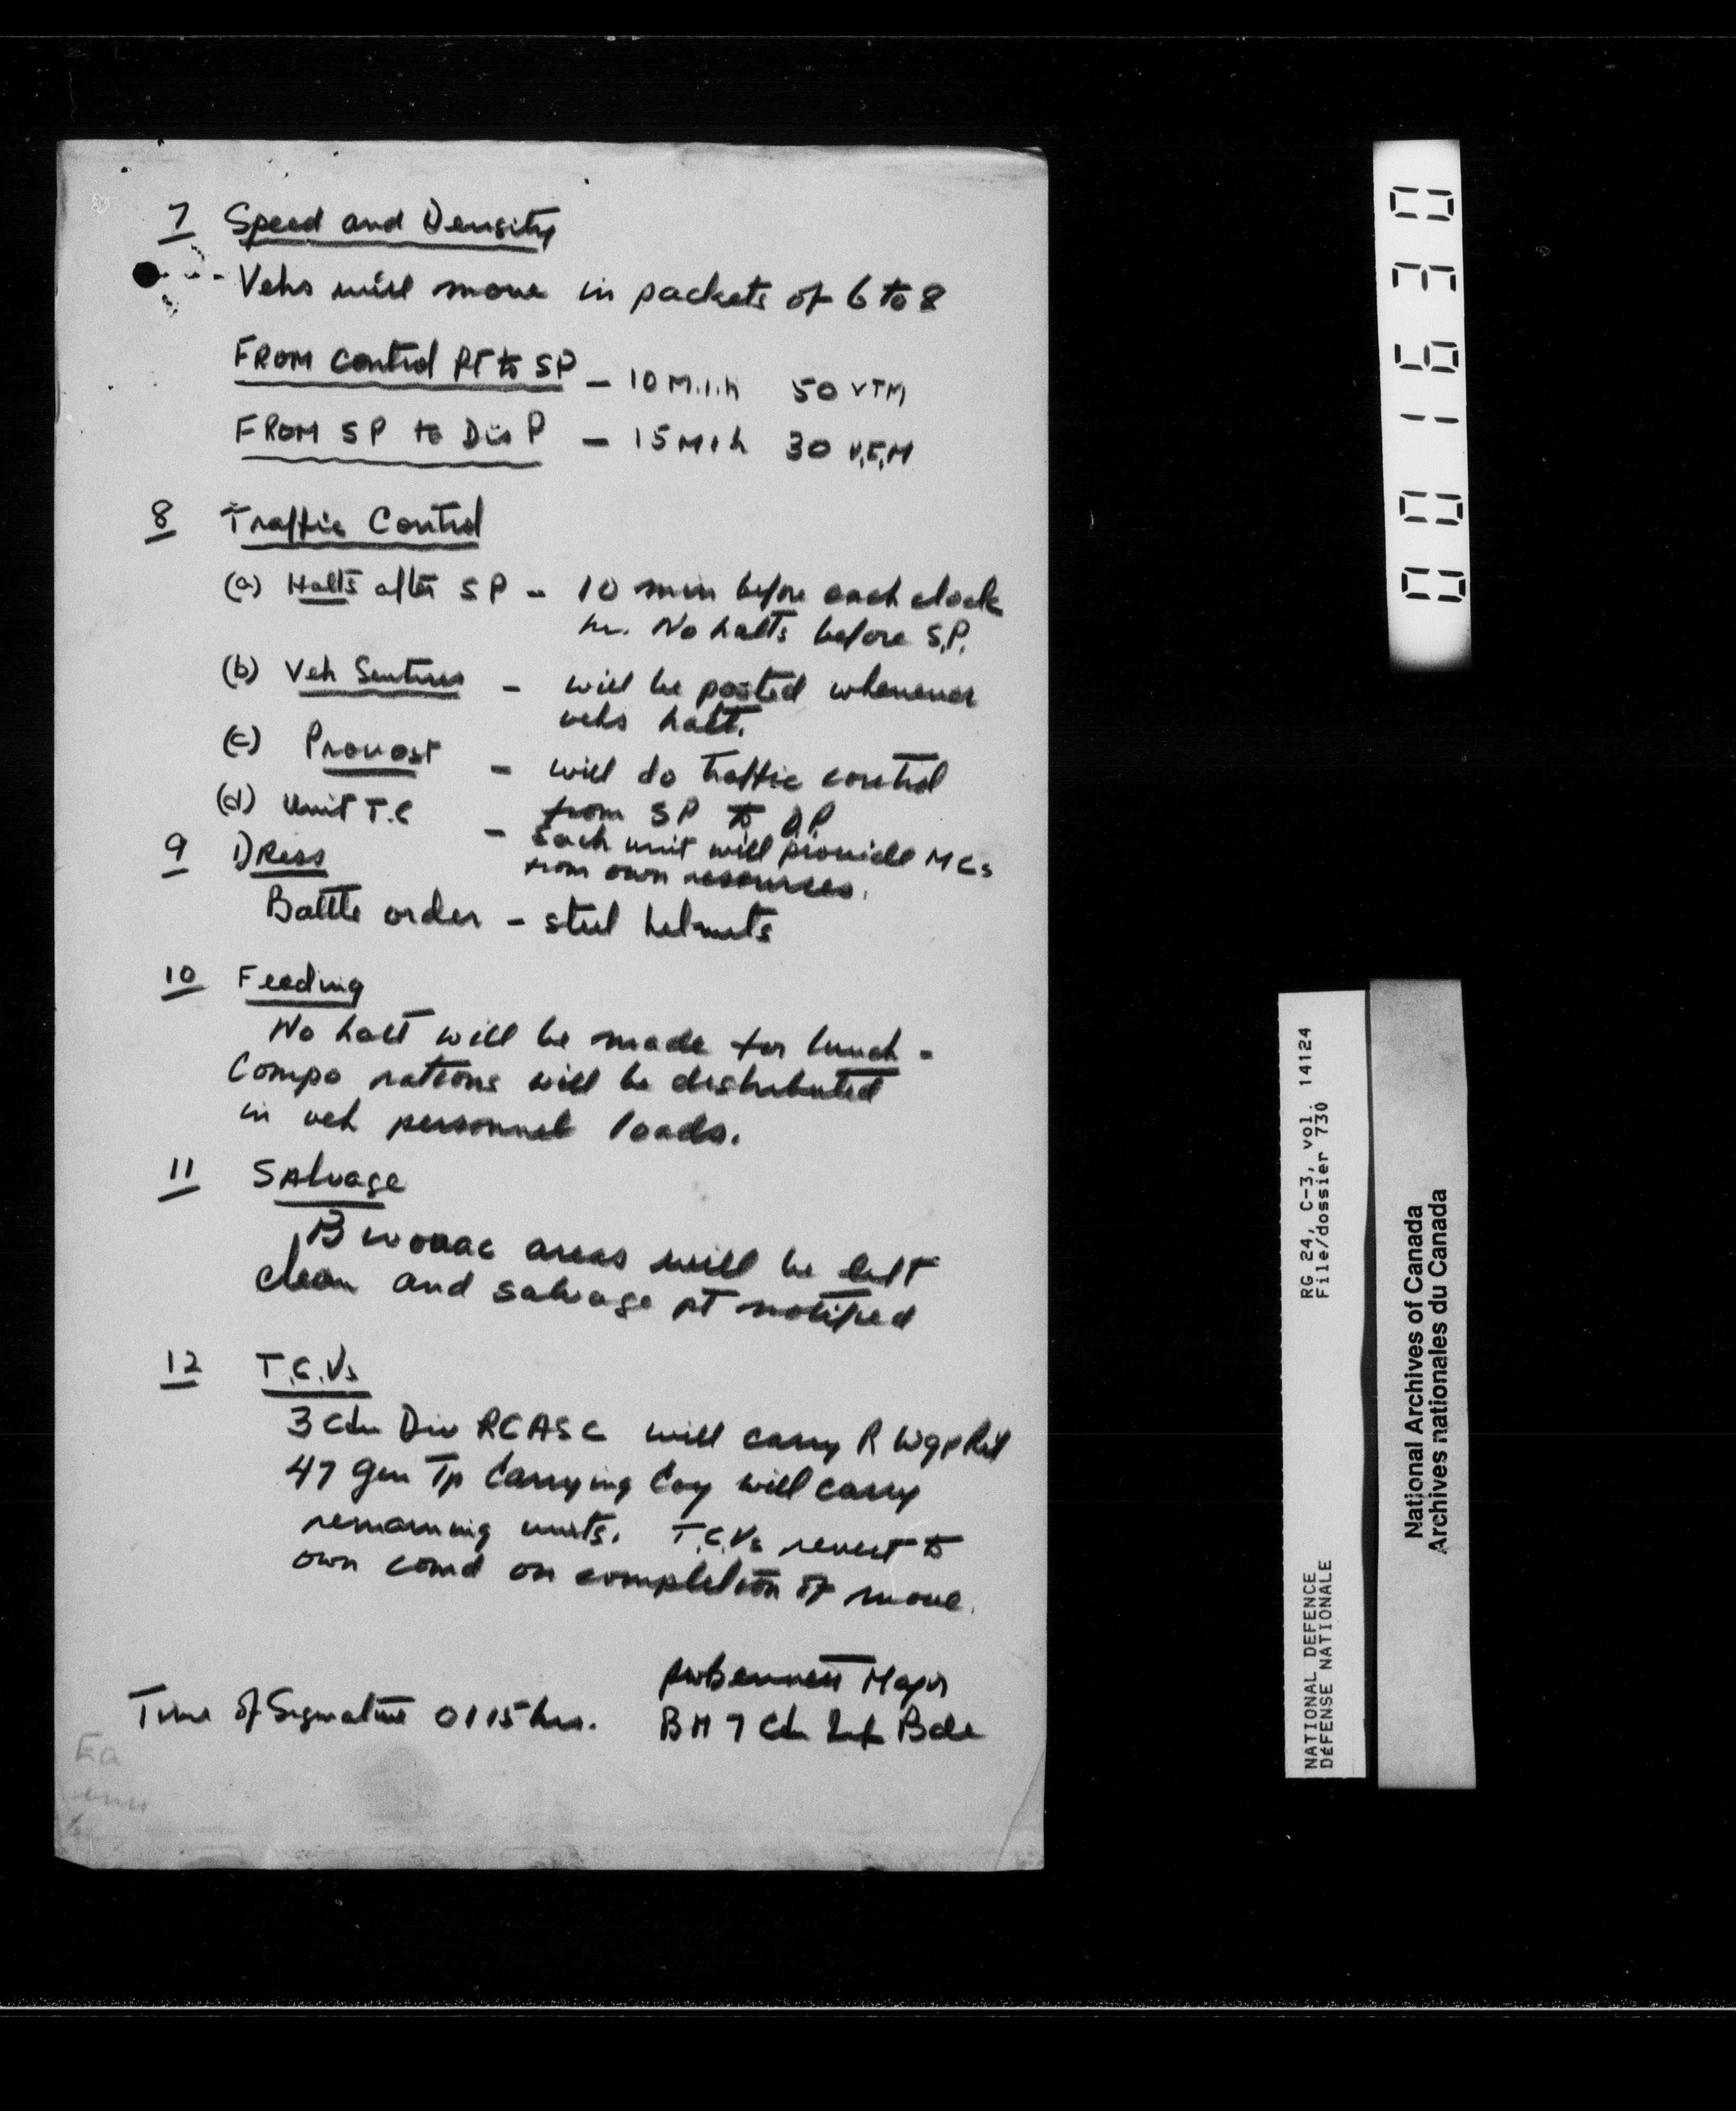 7 Speed and Density
- Vehs will move in packets of 6 to 8
FROM Control Pt to SP - 10 M.i.h 50 VTM
FROM SP to Dis P - 15 M i h 30 V.T.M
8 Traffic Control
(a) Halts after SP - 10 min before each clock
hr. No halts before S.P.
(b) Veh Sentries - will be posted whenever
vehs halt.
(c) Provost - will do traffic control
from SP to D.P.
(d) Unit T.C - Each unit will provide MCs
from own resources.
9 DRess
Battle order - steel helmets
10 Feeding
No halt will be made for lunch -
Compo rations will be distributed
in veh personnel loads.
11 SAlvage
Bivouac areas will be left
clean and salvage pt notified
12 T.C.Vs
3 Cdn Div RCASC will carry R Wgp Rif
47 Gen Tp Carrying Coy will carry
remaining units. T.C.Vs revert to
own comd on completion of move.
Bennett Major
Time of Signature 0115 hrs. BM 7 Cdn Inf Bde
001630
RG 24, C-3, vol. 14124
File/dossier 730
NATIONAL DEFENCE
DÉFENSE NATIONALE
National Archives of Canada
Archives nationales du Canada